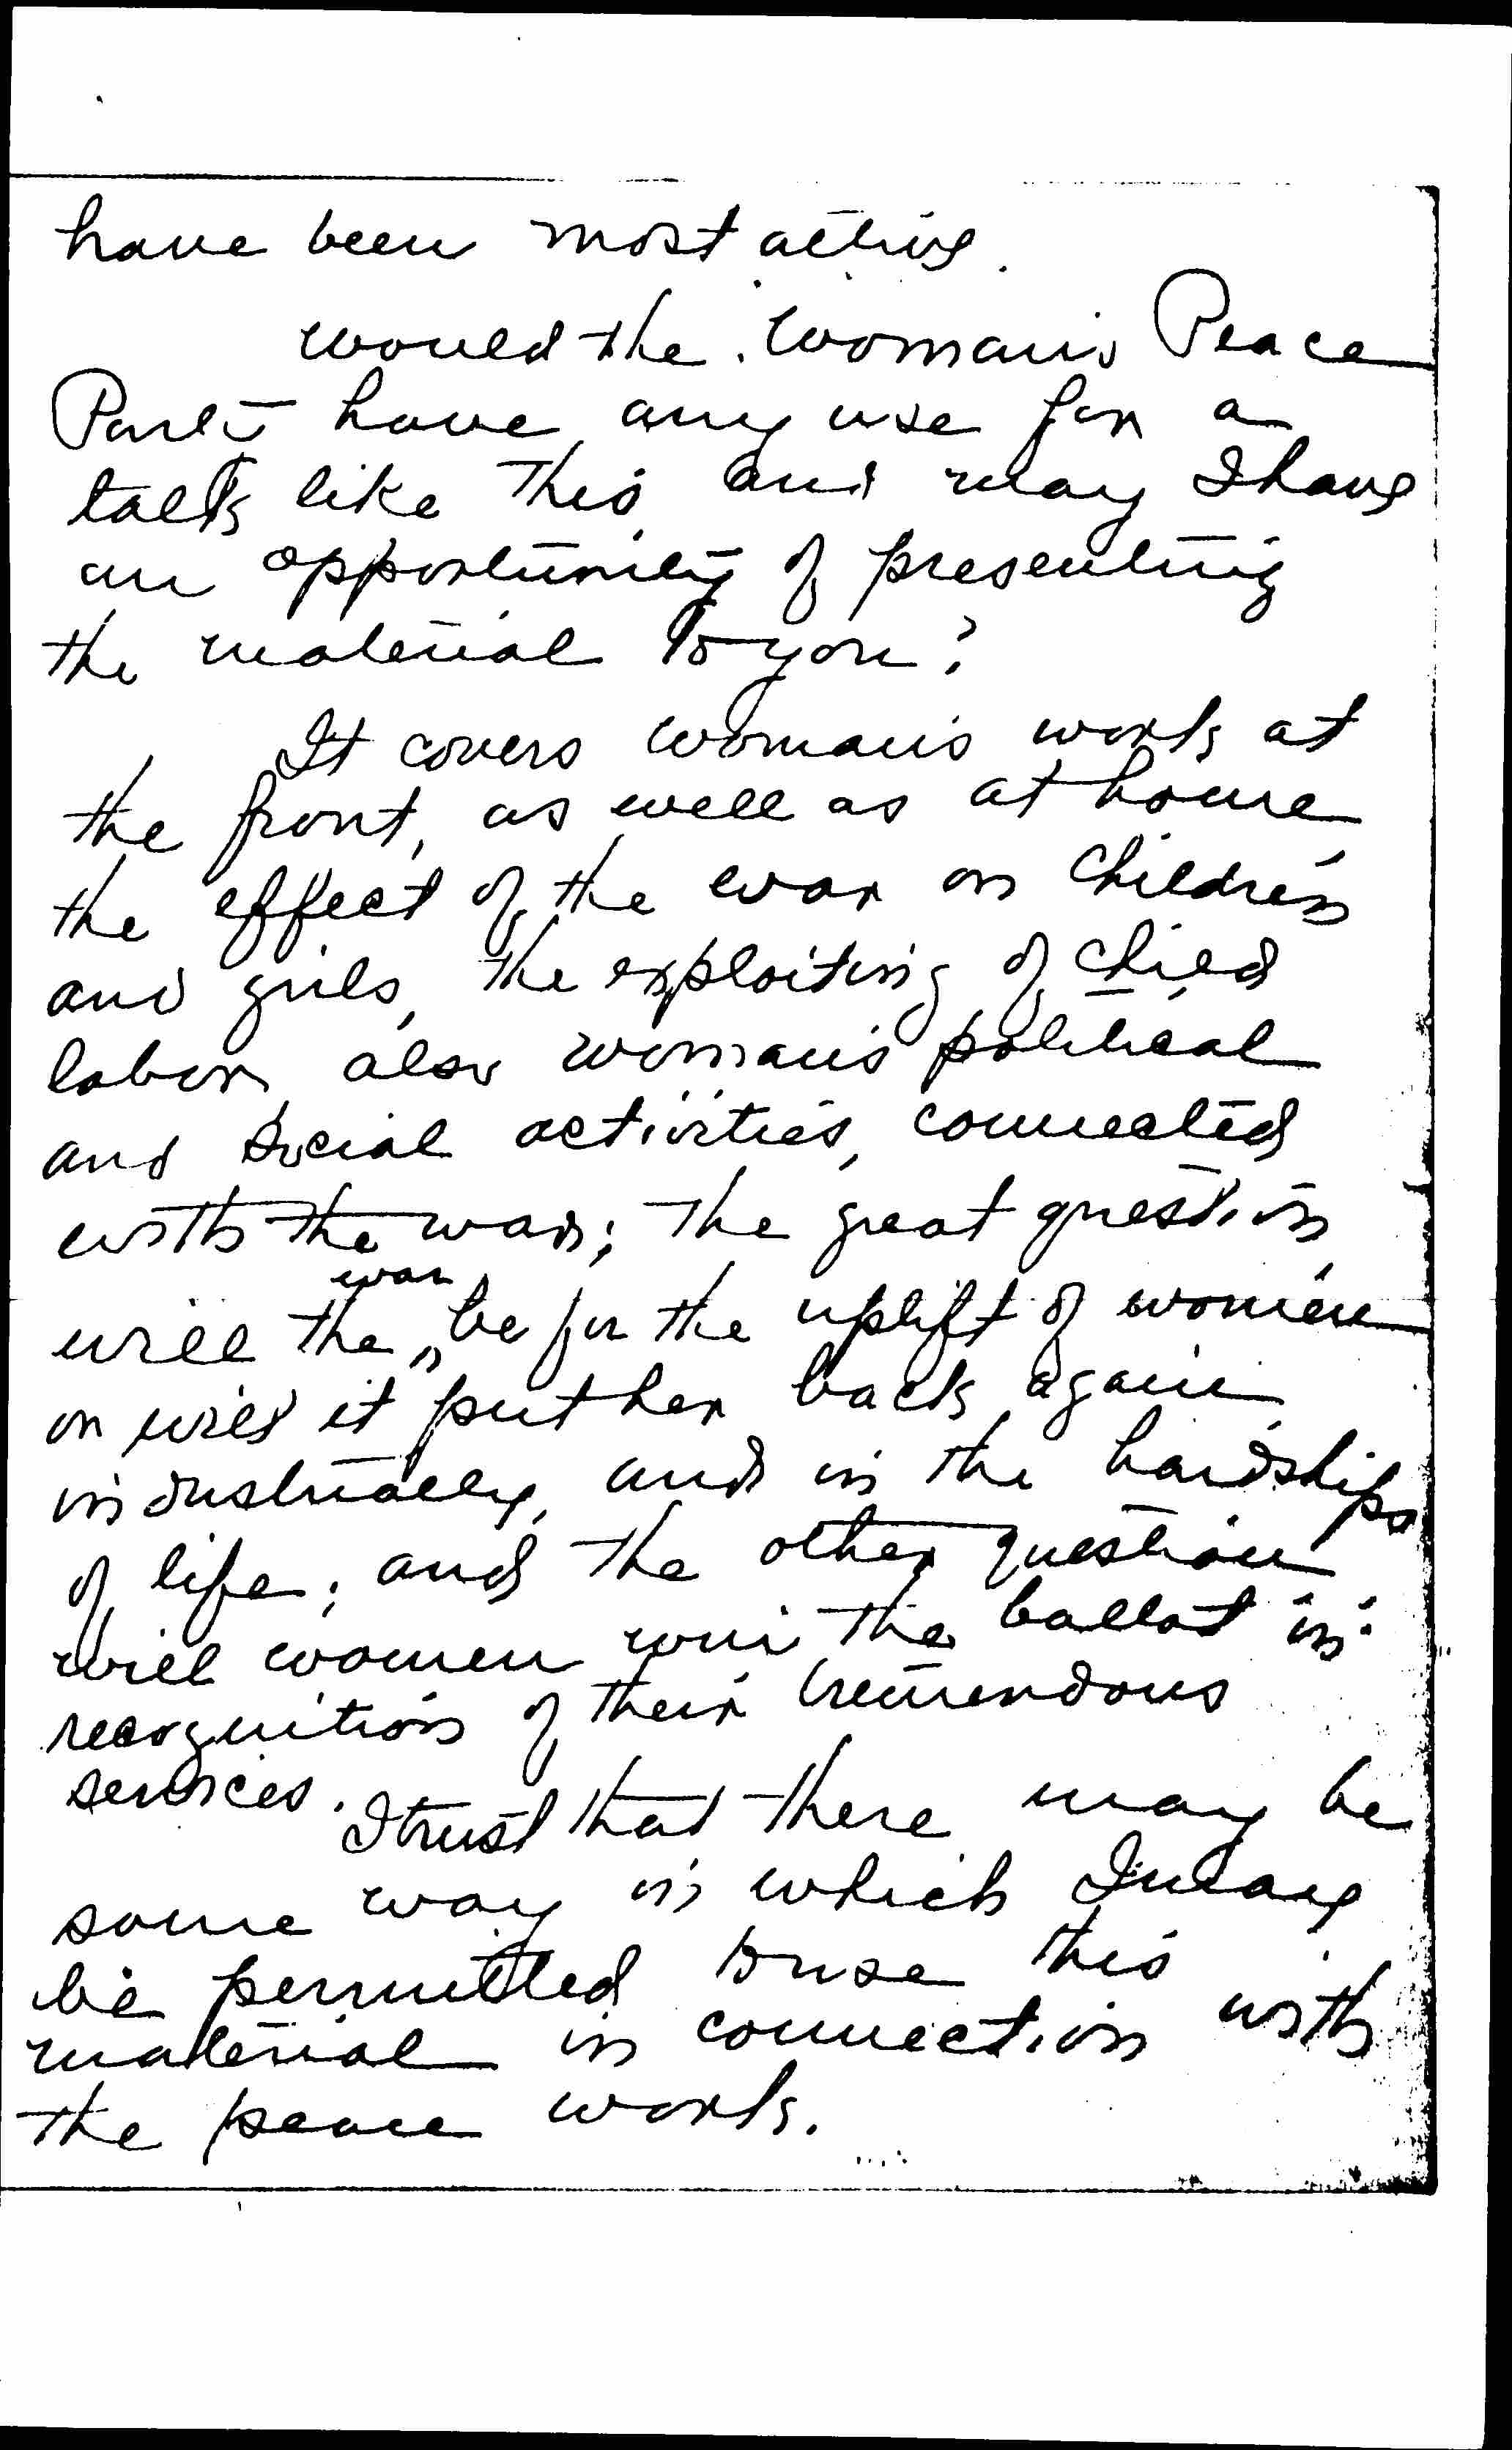 have been most active.
Would the Woman's Peace
Party have any use for a
talk like this and may I have
an opportunity of presenting
the material to you?
It covers woman's work at
the front, as well as at home,
the effect of the war on children
and girls, the exploiting of child
labor, also woman's political
and social activities, connected
with the war; the great question,
will the war be for the uplift of women
or will it put her back again
industrially, and in the hardships
of life; and the other question
will women win the ballot in
recognition of their tremendous
services.
I trust that there may be
some way in which I may
be permitted to use this
material in connection with
the peace work.